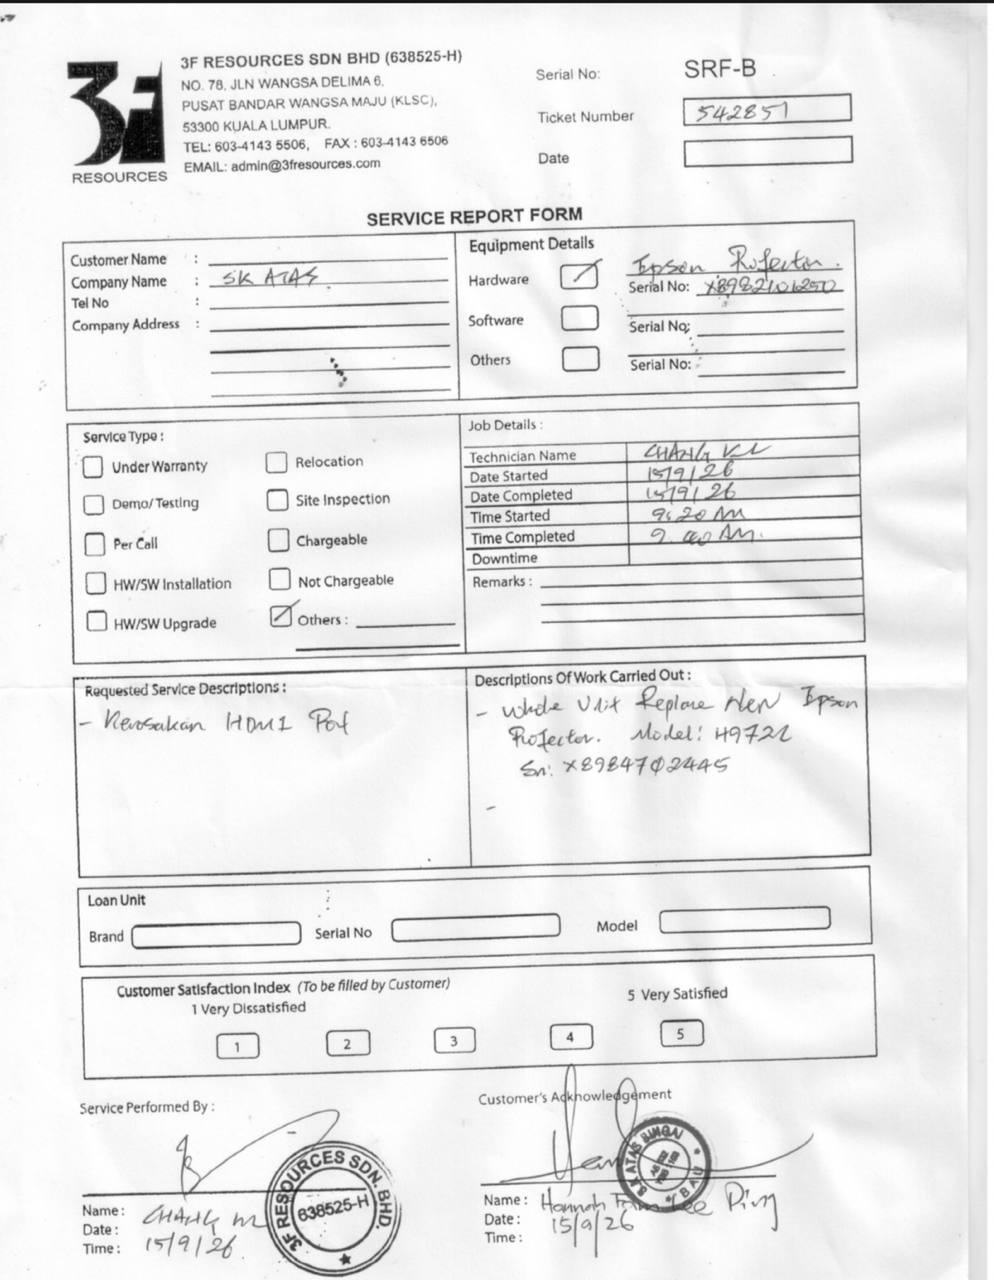 3F RESOURCES SDN BHD (638525-H)
NO. 78, JLN WANGSA DELIMA 6,
PUSAT BANDAR WANGSA MAJU (KLSC),
53300 KUALA LUMPUR.
TEL: 603-4143 5506, FAX : 603-4143 6506
EMAIL: admin@3fresources.com
3F
RESOURCES
Serial No: SRF-B
Ticket Number 542851
Date
SERVICE REPORT FORM
Customer Name :
Company Name : SK ATAS
Tel No :
Company Address :
Equipment Details
Hardware Epson Projector.
Serial No: X8982101250
Software
Serial No:
Others
Serial No:
Service Type :
Under Warranty
Relocation
Demo/ Testing
Site Inspection
Per Call
Chargeable
HW/SW Installation
Not Chargeable
HW/SW Upgrade
Others :
Job Details :
Technician Name CHANG
Date Started 15/9/26
Date Completed 15/9/26
Time Started 9:20 AM
Time Completed 9. AM.
Downtime
Remarks :
Requested Service Descriptions :
- Kerosakan HDMI Port
Descriptions Of Work Carried Out :
- Whole Unit Replace New Epson
Projector. Model: H972C
Sn: X8984702445
-
Loan Unit
Brand
Serial No
Model
Customer Satisfaction Index (To be filled by Customer)
1 Very Dissatisfied
5 Very Satisfied
1 2 3 4 5
Service Performed By :
Name: CHANG
Date: 15/9/26
Time:
3F RESOURCES SDN. BHD.
638525-H
Customer's Acknowledgement
Name : Hannah Lee Ping
Date : 15/9/26
Time :
S.K ATAS SUNGAI